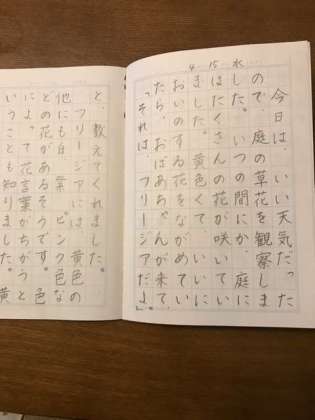 4 15 水
今日は、いい天気だった
ので、庭の草花を観察しま
した。いつの間にか、庭に
はたくさんの花が咲いてい
ました。黄色くて、いいに
おいのする花をながめてい
たら、おばあちゃんが来て
「それは、フリージアだよ。」
と、教えてくれました。
フリージアには、黄色の
他にも白、紫、ピンク色な
どの花があるそうです。色
によって花言葉がちがうと
いうことも知りました。黄